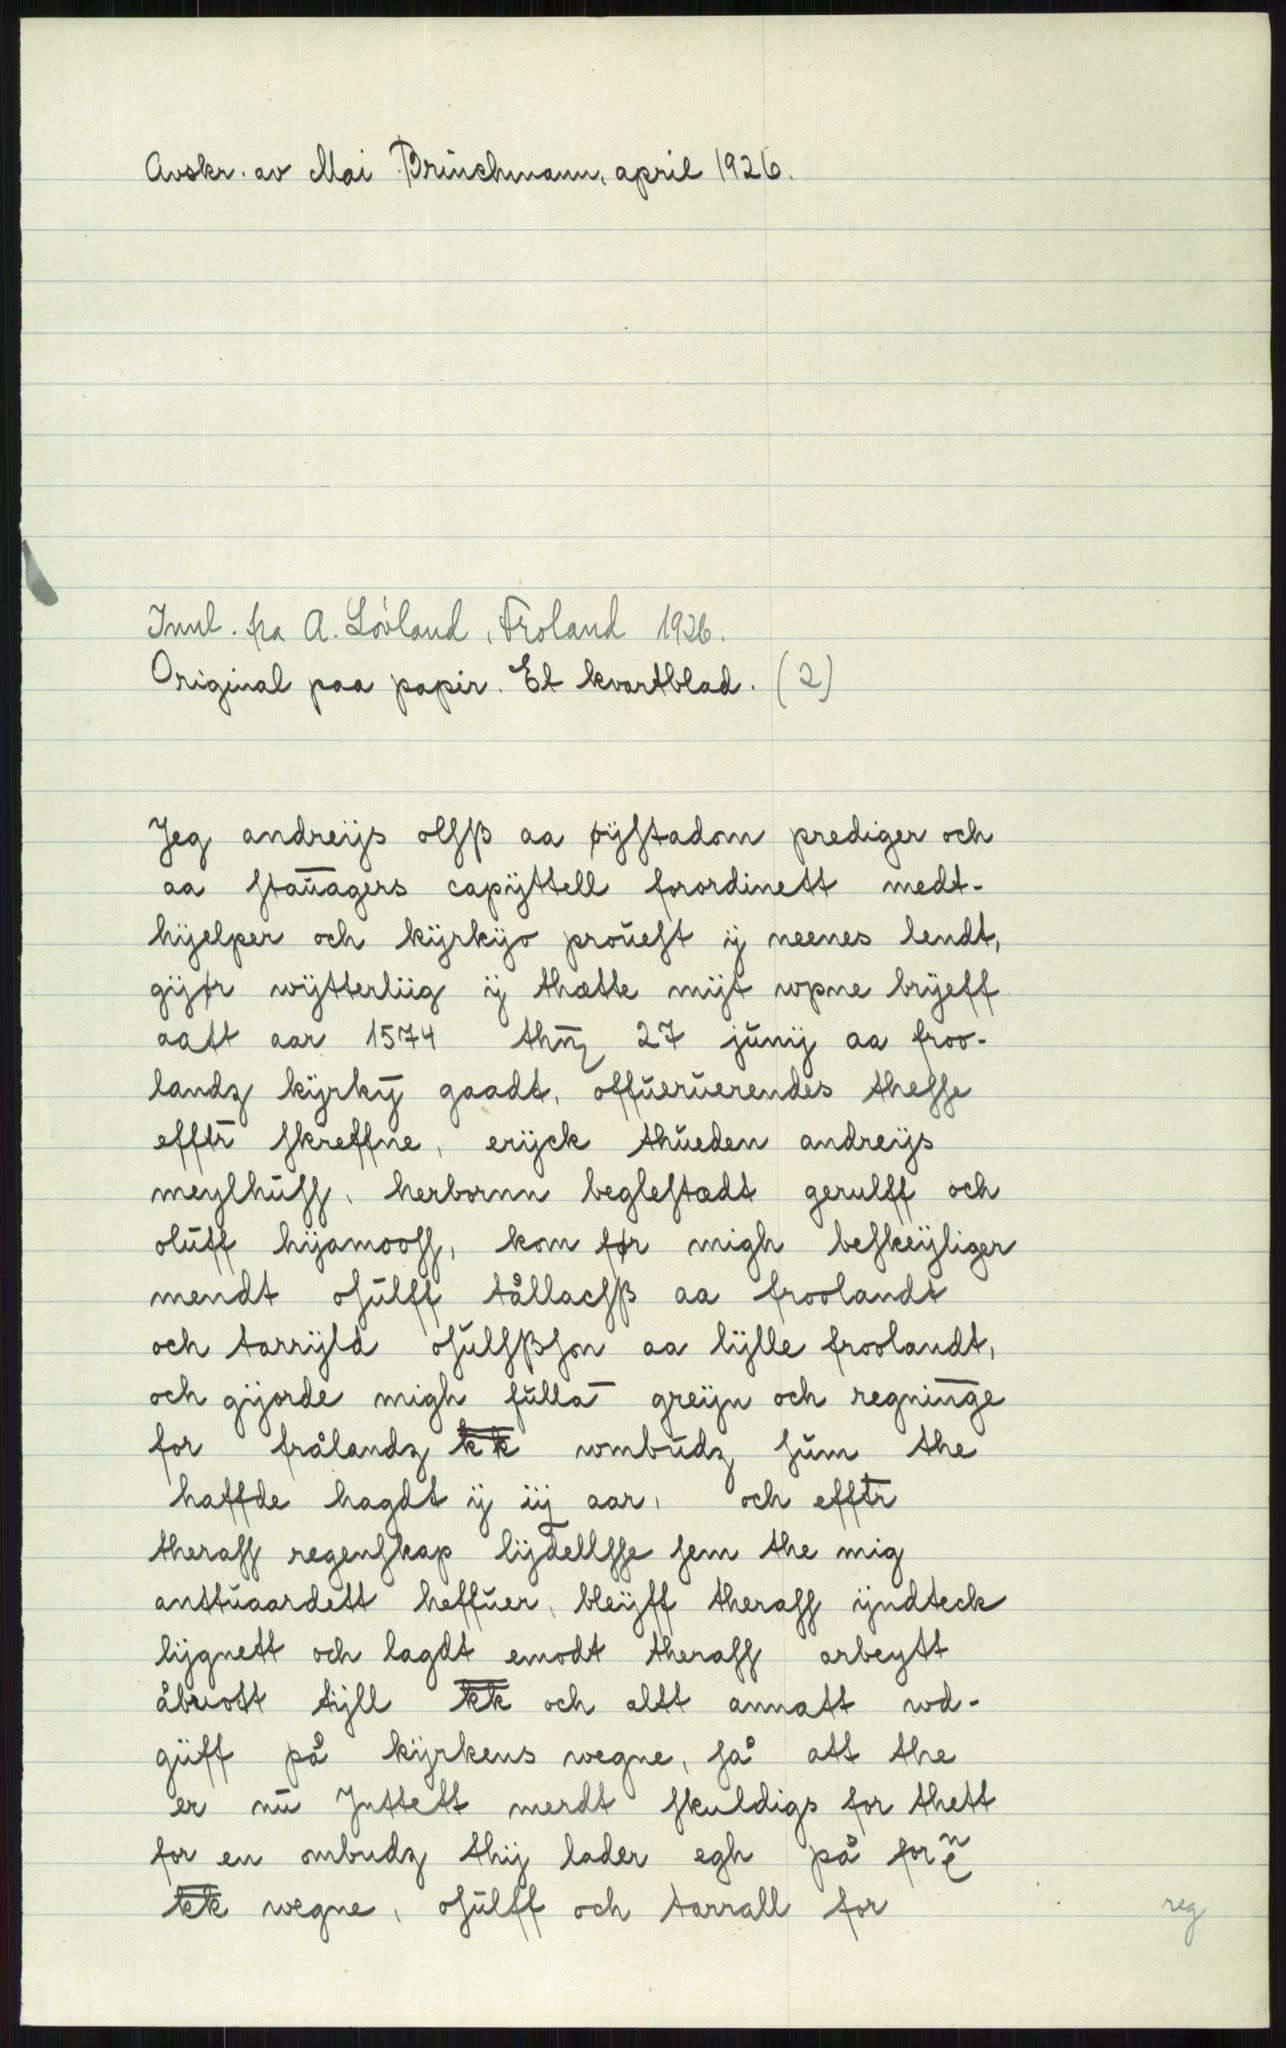 Avskr. av Mai Brinchmann, april 1926.
Innl. fra A. Løvland, Froland 1926.
Original paa papir. Et kvartblad. (2)
Jeg andreijs olſß aa øÿſtadom prediger och
aa ſtaūagers capÿttell forordinett medt-
hÿelper och kÿrkÿo proŭeſt ÿ neenes lendt,
gÿør wÿtterliig ÿ thætte mÿt wpne brÿeff
aatt aar 1574 thn̄ꝫ 27 jŭnij aa froo-
landꝫ kÿrkȳ gaadt, offŭerŭerendes theſſe
efftr̄ ſkreffne, erÿck thŭeden andreÿs
meylhŭſſ, herbornn begleſtædt gerulff och
olŭff hÿamooſſ, kom før migh beſkeÿliger
mendt oſŭlff tållacſß aa froolandt
och tarrÿld oſŭlſßſon aa lÿlle froolandt,
och gÿorde migh fŭlla̅ greÿn och regnin̅ge
for frålandꝫ k̅k̅ wmbŭdꝫ ſŭm the
haffde hagdt ÿ iij aar, och efftr̄
theraff regenſkap lÿdellſſe ſem the mig
anttŭaardett heffŭer, bleÿff theraff ÿndteck
lÿgnett och lagdt emodt theraff arbeytt
åbrott tÿll k̅k̅ och altt annatt wd-
gŭff på kÿrkens wegne, ſå att the
er nŭ Jnttett merdt ſkuldigs for thett
for en ombudꝫ thÿ lader egh på forⁿe
k̅k̅ wegne, oſŭlff och tarrall for
reg